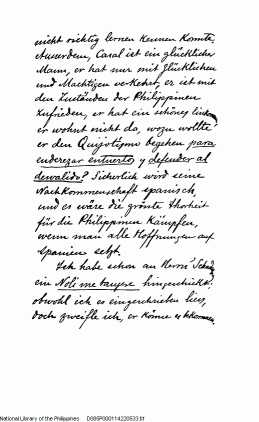 nicht richtig lernen kennen konnte.
Ausserdem, Casal ist ein glücklicher
Mann, er hat nur mit Glücklichen
und Mächtigen verkehrt, er ist mit
den Zuständen der Philippinen
zufrieden, er hat ein schönes
er wohnt nicht da, wozu wollte
er den Quijotismo begehen para
enderezar entuertos y defender al
desvalido? Sicherlich wird seine
Nachkommenschaft spanisch,
und es wäre die grösste Thorheit
für die Philippinen Kämpfen,
wenn man alle Hoffnungen auf
Spanien setzt.
Ich habe schon an Herrn
ein Noli me tangere hingeschickt.
obwohl ich es eingeschrieben liess,
doch zweifle ich, er könne es bekommen.
National Library of the Philippines D885P000114220533.tif